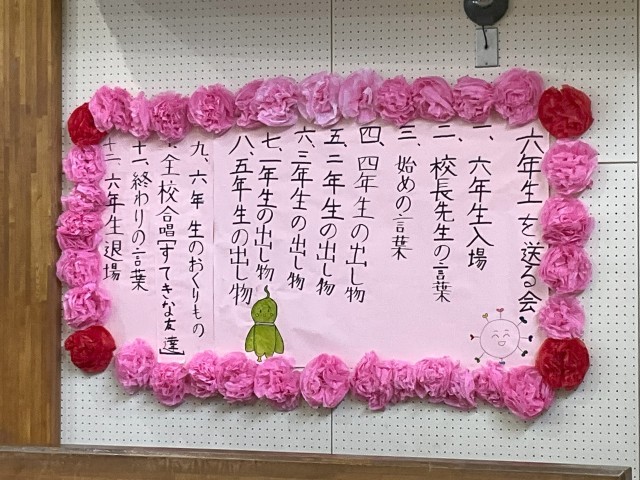 六年生を送る会
一、六年生入場
二、校長先生の言葉
三、始めの言葉
四、四年生の出し物
五、二年生の出し物
六、三年生の出し物
七、一年生の出し物
八、五年生の出し物
九、六年生のおくりもの
十、全校合唱[すてきな友達]
十一、終わりの言葉
十二、六年生退場